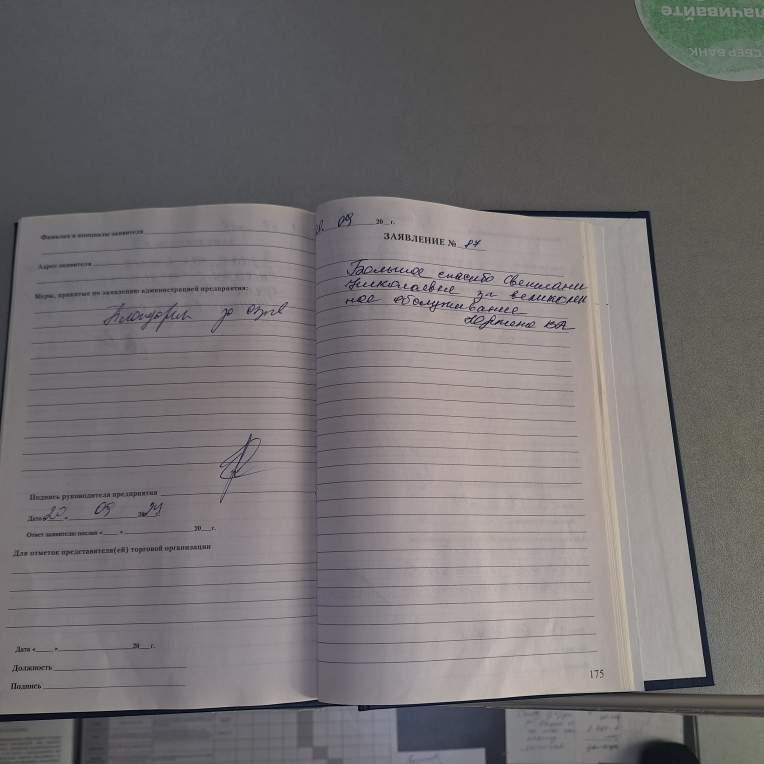 лачивайте
СБЕР БАНК
Фамилия и инициалы заявителя
Адрес заявителя
Меры, принятые по заявлению администрацией предприятия:
Благодарим за отзыв
Подпись руководителя предприятия
Дата « 20 » 09 2024
Ответ заявителю послан «___» 20__г.
Для отметок представителя(ей) торговой организации
Дата «___» 20__г.
Должность
Подпись
09 20__г.
ЗАЯВЛЕНИЕ № 84
Большое спасибо Светлане
Николаевне за великолеп
ное обслуживание
175